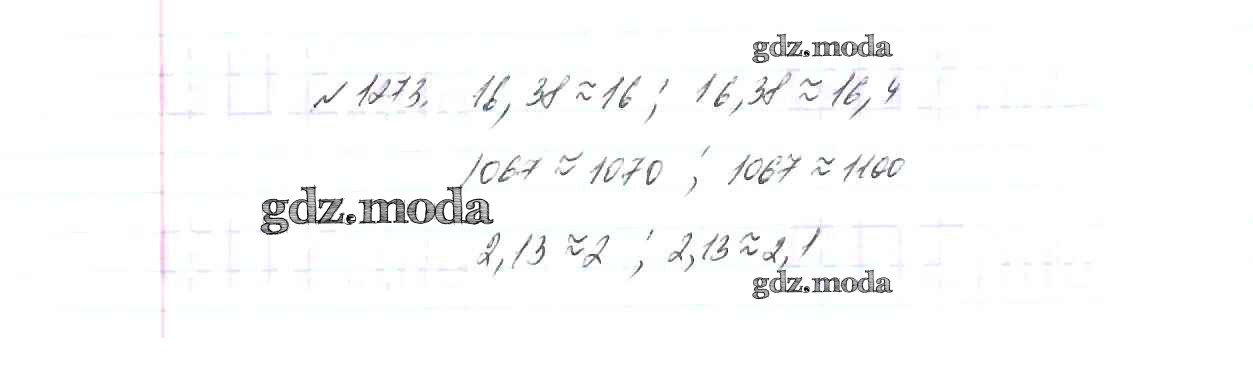 gdz.moda
№ 1273. 16,38 ≈ 16 ; 16,38 ≈ 16,4
1067 ≈ 1070 ; 1067 ≈ 1100
gdz.moda
2,13 ≈ 2 ; 2,13 ≈ 2,1
gdz.moda